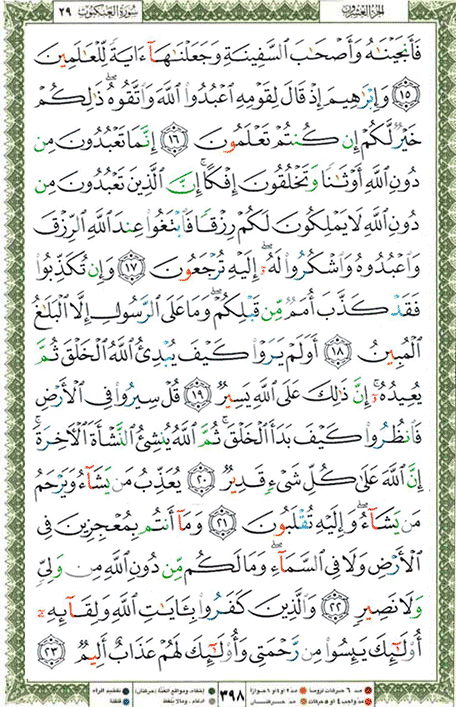 الجزء العشرون
سورة العنكبوت
٢٩
فَأَنجَيْنَٰهُ وَأَصْحَٰبَ ٱلسَّفِينَةِ وَجَعَلْنَٰهَآ ءَايَةً لِّلْعَٰلَمِينَ
١٥ وَإِبْرَٰهِيمَ إِذْ قَالَ لِقَوْمِهِ ٱعْبُدُوا۟ ٱللَّهَ وَٱتَّقُوهُ ۖ ذَٰلِكُمْ
خَيْرٌ لَّكُمْ إِن كُنتُمْ تَعْلَمُونَ ١٦ إِنَّمَا تَعْبُدُونَ مِن
دُونِ ٱللَّهِ أَوْثَٰنًا وَتَخْلُقُونَ إِفْكًا ۚ إِنَّ ٱلَّذِينَ تَعْبُدُونَ مِن
دُونِ ٱللَّهِ لَا يَمْلِكُونَ لَكُمْ رِزْقًا فَٱبْتَغُوا۟ عِندَ ٱللَّهِ ٱلرِّزْقَ
وَٱعْبُدُوهُ وَٱشْكُرُوا۟ لَهُۥٓ ۖ إِلَيْهِ تُرْجَعُونَ ١٧ وَإِن تُكَذِّبُوا۟
فَقَدْ كَذَّبَ أُمَمٌ مِّن قَبْلِكُمْ ۖ وَمَا عَلَى ٱلرَّسُولِ إِلَّا ٱلْبَلَٰغُ
ٱلْمُبِينُ ١٨ أَوَلَمْ يَرَوْا۟ كَيْفَ يُبْدِئُ ٱللَّهُ ٱلْخَلْقَ ثُمَّ
يُعِيدُهُۥٓ ۚ إِنَّ ذَٰلِكَ عَلَى ٱللَّهِ يَسِيرٌ ١٩ قُلْ سِيرُوا۟ فِى ٱلْأَرْضِ
فَٱنظُرُوا۟ كَيْفَ بَدَأَ ٱلْخَلْقَ ۚ ثُمَّ ٱللَّهُ يُنشِئُ ٱلنَّشْأَةَ ٱلْأَخِرَةَ ۚ
إِنَّ ٱللَّهَ عَلَىٰ كُلِّ شَىْءٍ قَدِيرٌ ٢٠ يُعَذِّبُ مَن يَشَآءُ وَيَرْحَمُ
مَن يَشَآءُ ۖ وَإِلَيْهِ تُقْلَبُونَ ٢١ وَمَآ أَنتُم بِمُعْجِزِينَ فِى
ٱلْأَرْضِ وَلَا فِى ٱلسَّمَآءِ ۖ وَمَا لَكُم مِّن دُونِ ٱللَّهِ مِن وَلِىٍّ
وَلَا نَصِيرٍ ٢٢ وَٱلَّذِينَ كَفَرُوا۟ بِـَٔايَٰتِ ٱللَّهِ وَلِقَآئِهِۦٓ
أُو۟لَٰٓئِكَ يَئِسُوا۟ مِن رَّحْمَتِى وَأُو۟لَٰٓئِكَ لَهُمْ عَذَابٌ أَلِيمٌ ٢٣
٣٩٨